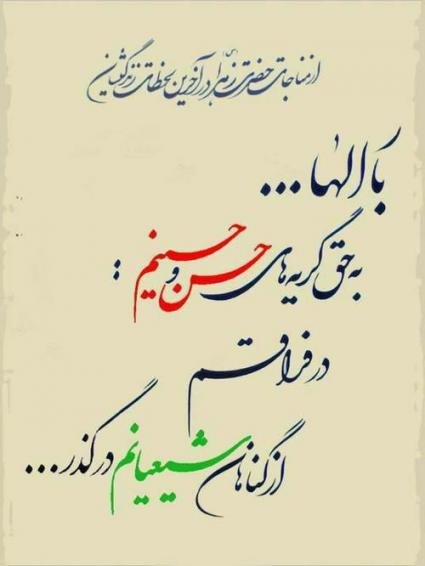 از مناجات حضرت زهرا در آخرین لحظات زندگیشان
بارالها...
به حق گریه های حسن و حسینم :
در فراقم
از گناهان شیعیانم درگذر...